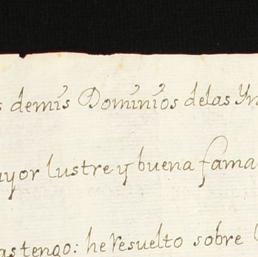 s demis Dominios delas Yn
ayor lustre y buena fama
as tengo: he resuelto sobre